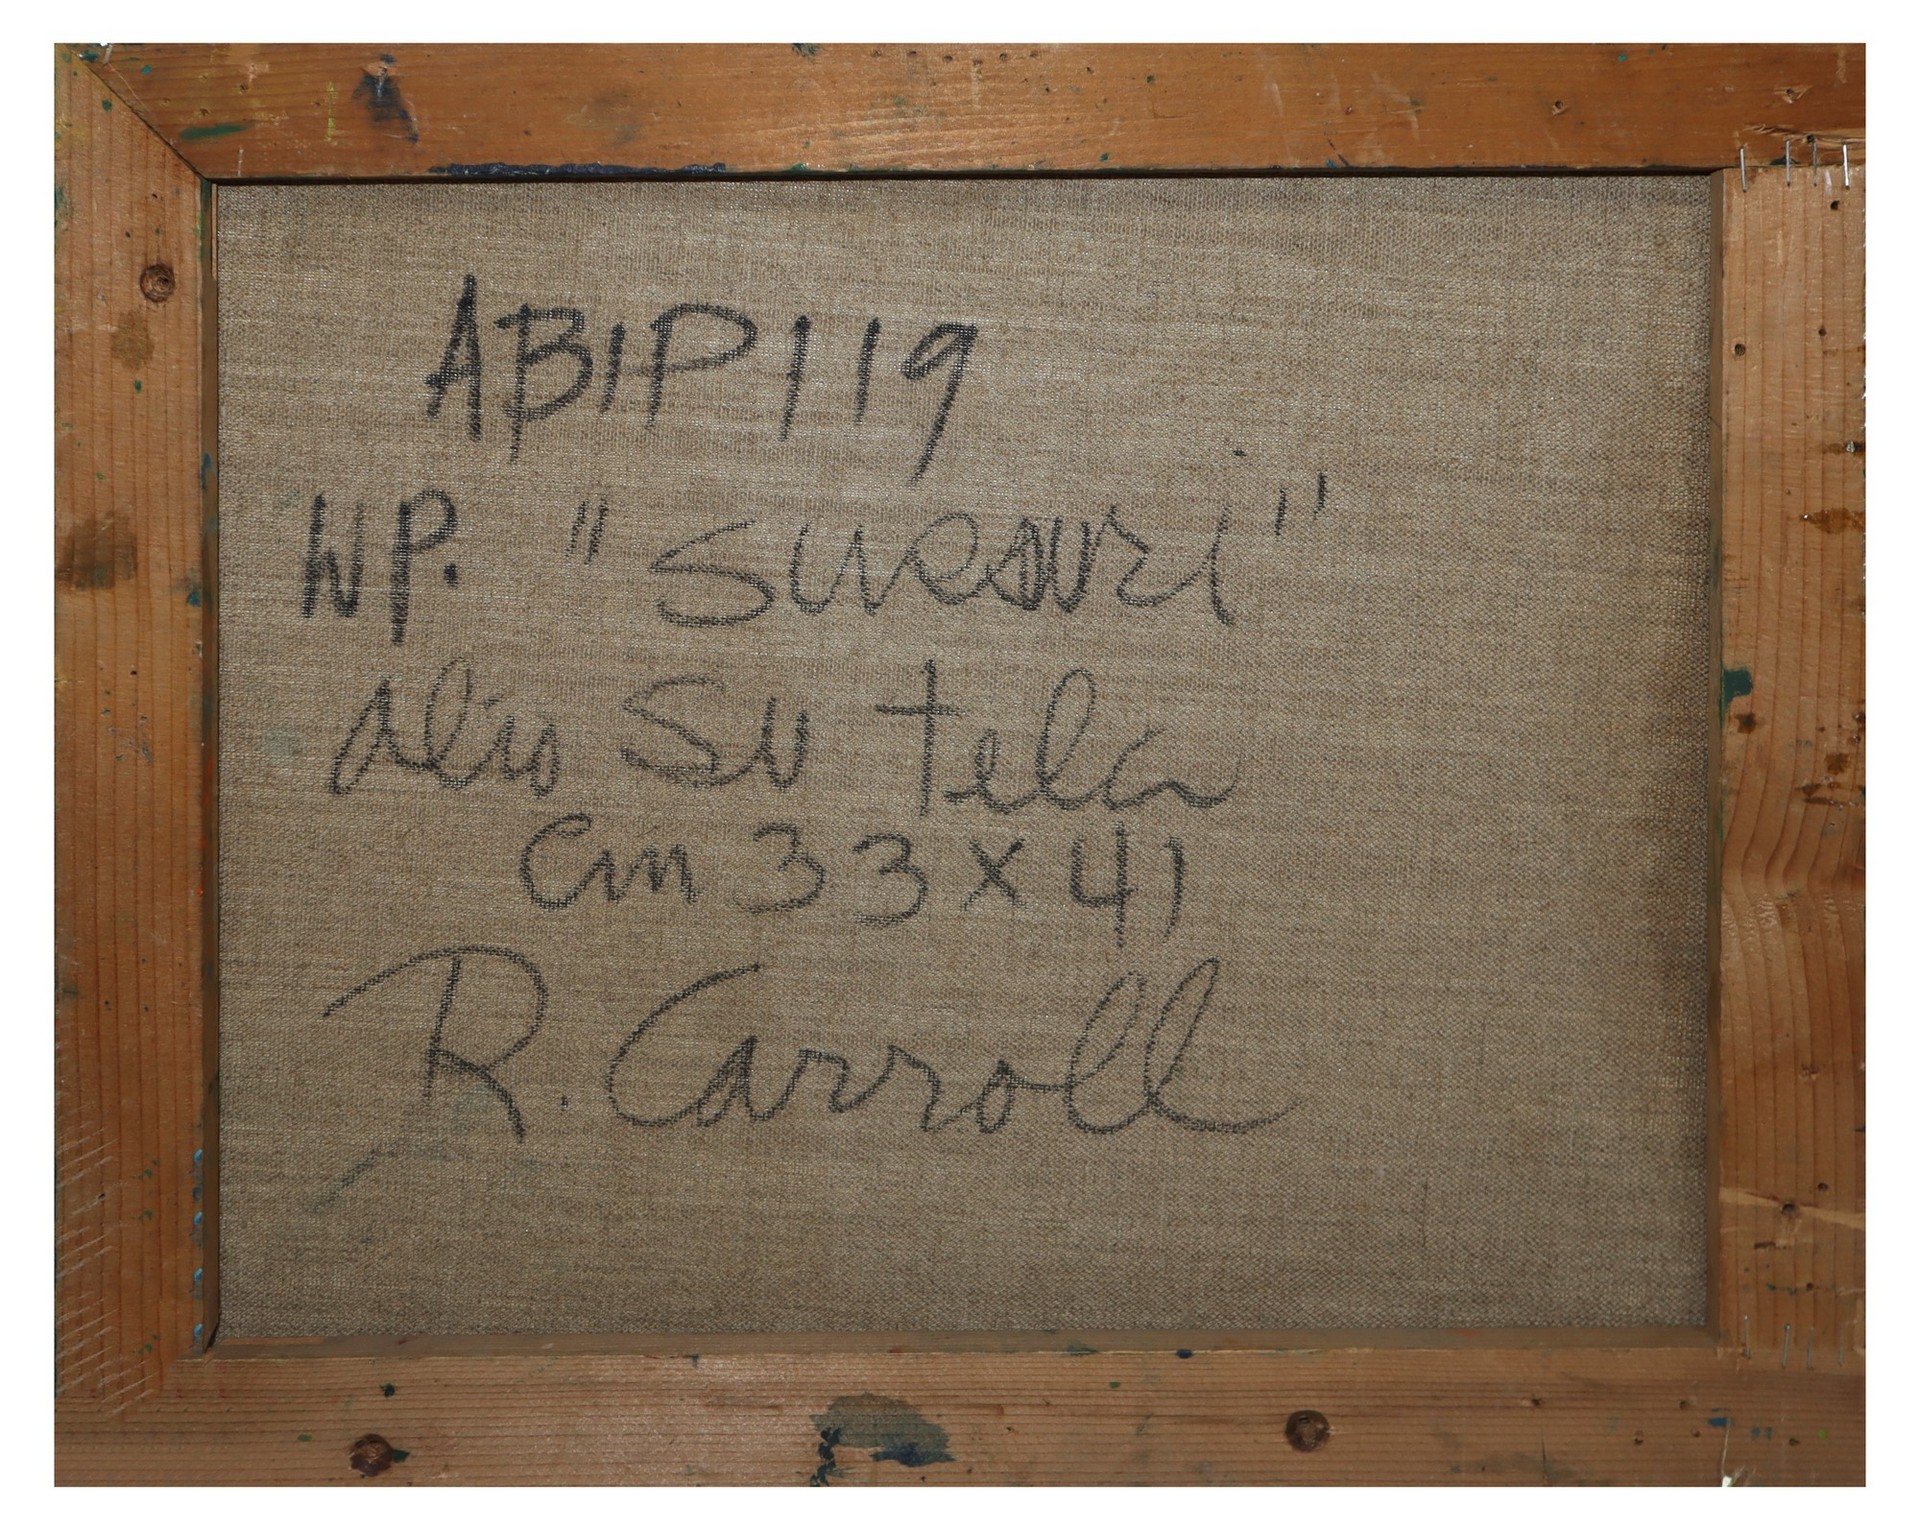 ABIP119
WP. "Suzavri"
olio su tela
cm 33 x 41
R. Carroll